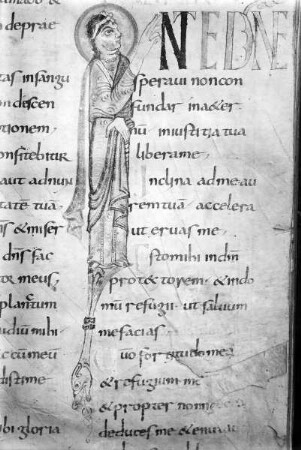 & deprae
tas insangui
descen
tionem
onfitebitur
aut adnun
tatē tuā
s & miser
dn̄s fac
tor meus
planctum
udiū mihi
ccū meū
disti me
ibi gloria
NTE DNE
speravi non con
fundar in a&er
nū in iustitia tua
libera me
nclina ad me au
rem tuā accelera
ut eruas me
sto mihi in dm̄
prot&torem & in do
mū refugii ut saluum
me facias
fortitudo mea
& refugium
& propter
deduces me &